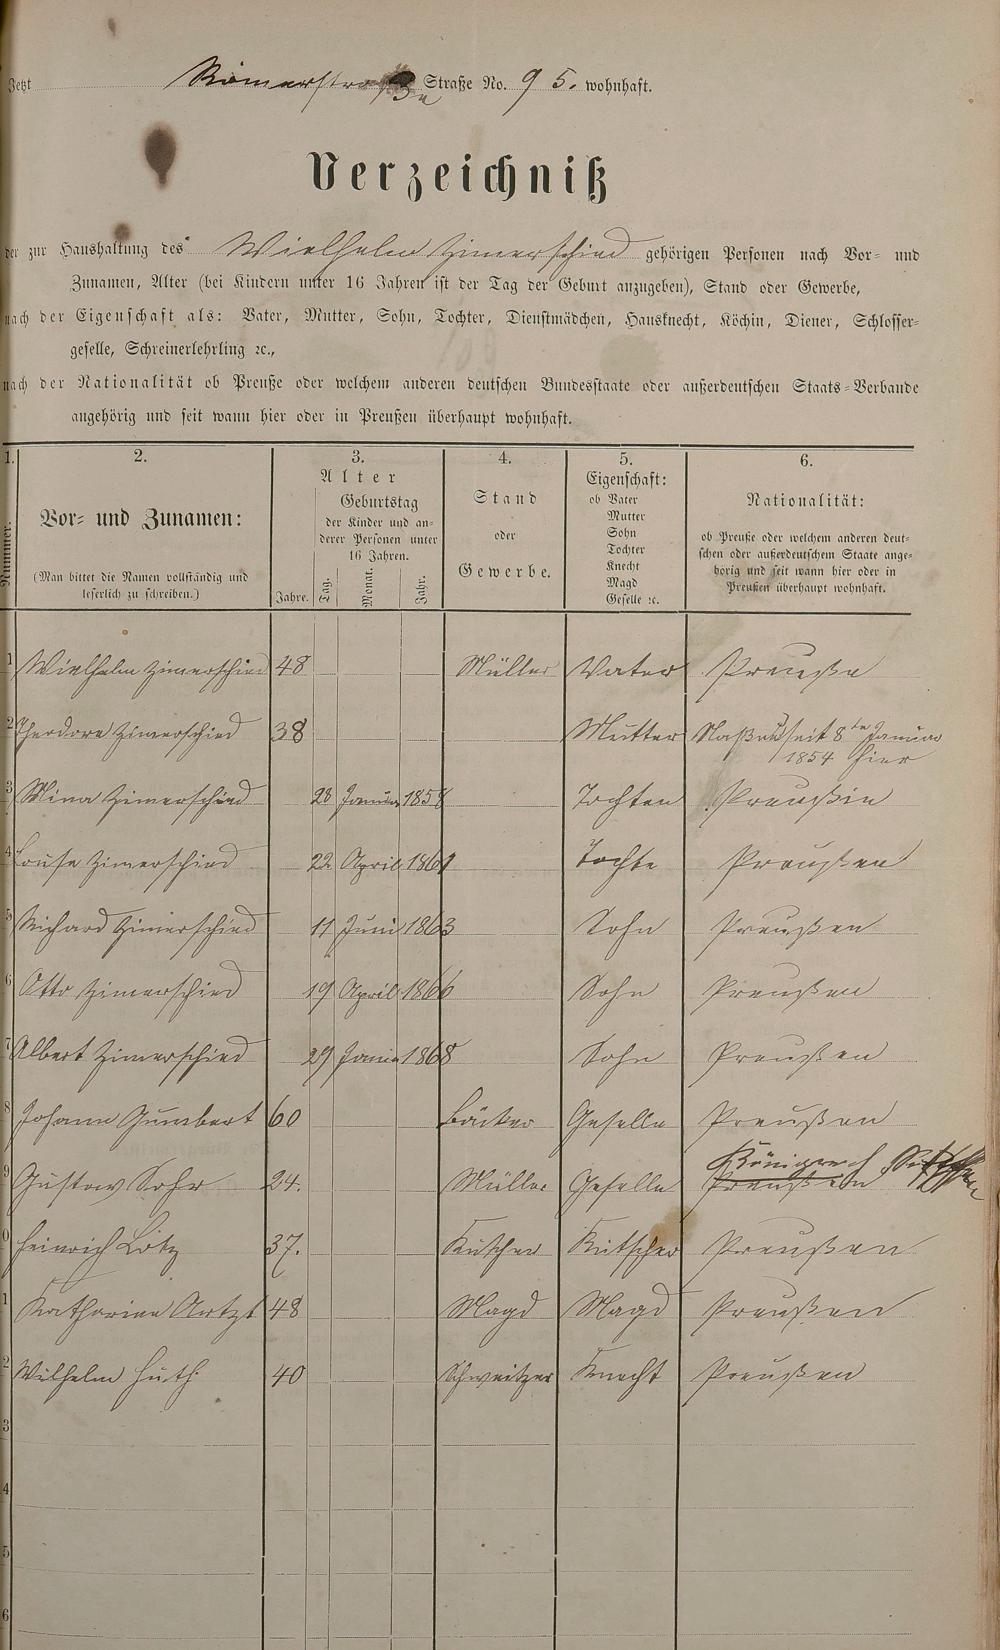 Jetzt Römerstraße Straße No. 95. wohnhaft.
Verzeichniß
der zur Haushaltung des Wielhelm Zimerschied gehörigen Personen nach Vor- und
Zunamen, Alter (bei Kindern unter 16 Jahren ist der Tag der Geburt anzugeben), Stand oder Gewerbe,
nach der Eigenschaft als: Vater, Mutter, Sohn, Tochter, Dienstmädchen, Hausknecht, Köchin, Diener, Schlosser-
geselle, Schreinerlehrling ꝛc.,
nach der Nationalität ob Preuße oder welchem anderen deutschen Bundesstaate oder außerdeutschen Staats-Verbande
angehörig und seit wann hier oder in Preußen überhaupt wohnhaft.
1. 2. 3. 4. 5. 6.
Nummer.
Vor- und Zunamen:
(Man bittet die Namen vollständig und
leserlich zu schreiben.)
Alter
Jahre.
Geburtstag
der Kinder und an-
derer Personen unter
16 Jahren.
Tag. Monat. Jahr.
Stand
oder
Gewerbe.
Eigenschaft:
ob Vater
Mutter
Sohn
Tochter
Knecht
Magd
Geselle ꝛc.
Nationalität:
ob Preuße oder welchem anderen deut-
schen oder außerdeutschem Staate ange-
hörig und seit wann hier oder in
Preußen überhaupt wohnhaft.
1 Wielhelm Zimerschied 48 Müller Vater Preuße
2 Theodore Zimerschied 38 Mutter seit 8te Januar
1854 hier
3 Mina Zimerschied 28 Januar 1858 Tochter Preußin
4 Louise Zimerschied 22 April 1861 Tochte Preußen
5 Richard Zimerschied 11 Juni 1863 Sohn Preußen
6 Otto Zimerschied 19 April 1866 Sohn Preußen
7 Albert Zimerschied 29 1868 Sohn Preußen
8 Johann Gumbert 60 Bäcker Geselle Preußen
Königreich Sachsen
9 Gustav Sohr 24. Müller Geselle Preußen
0 Heinrich Lötz 37. Kutscher Kutscher Preußen
1 Katharina Artzt 48 Magd Magd Preußen
2 Wilhelm Huth 40 Schweitzer Knecht Preußen
3
4
5
6